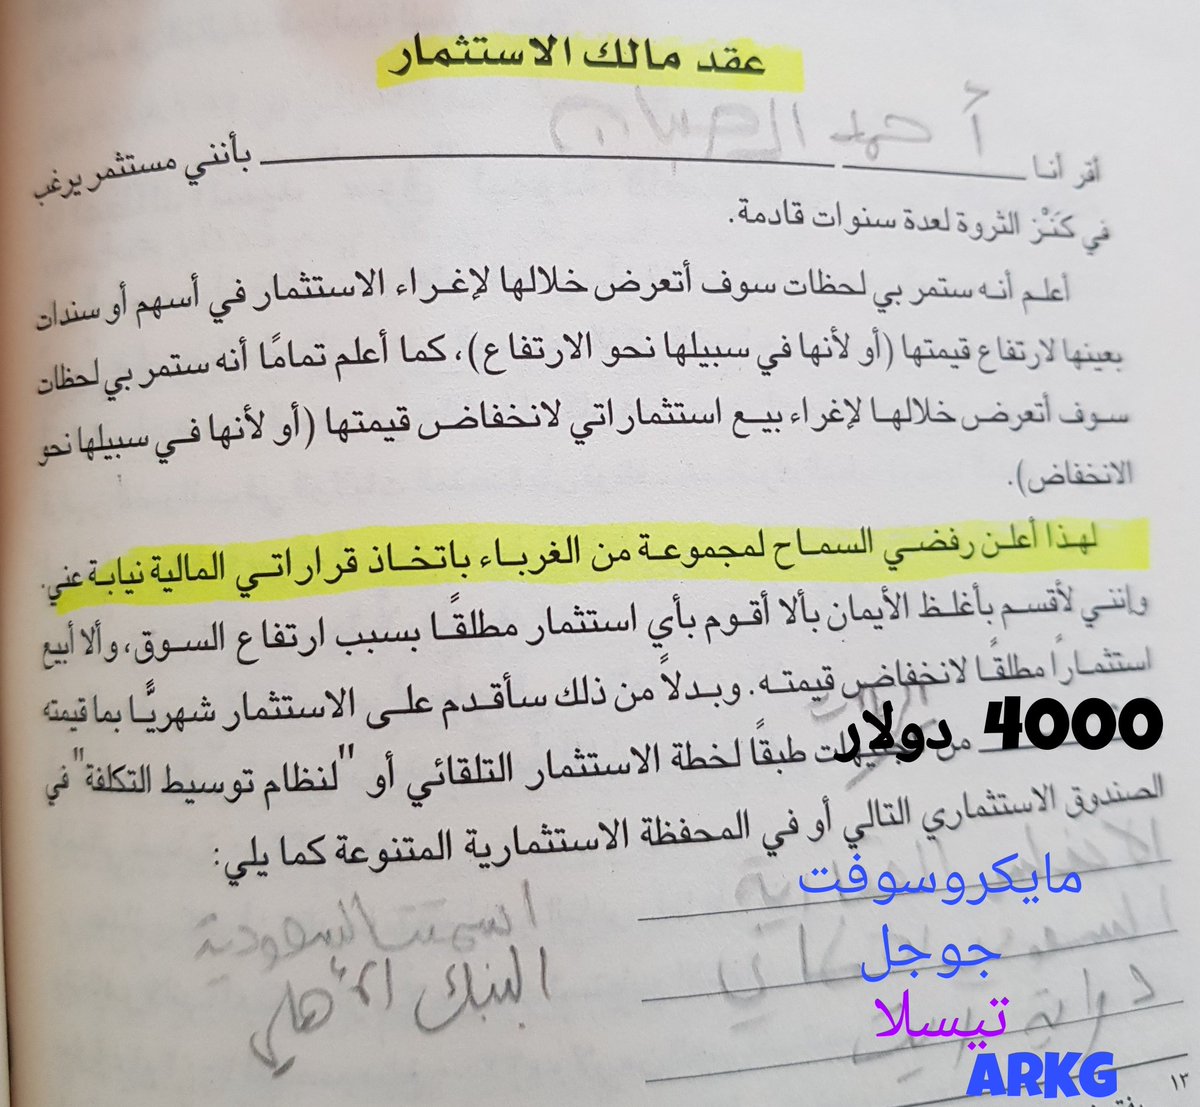 عقد مالك الاستثمار
أحمد
أقر أنا ــــــــــــــــــــ بأنني مستثمر يرغب
في كَنْز الثروة لعدة سنوات قادمة.
أعلم أنه ستمر بي لحظات سوف أتعرض خلالها لإغراء الاستثمار في أسهم أو سندات
بعينها لارتفاع قيمتها (أو لأنها في سبيلها نحو الارتفاع)، كما أعلم تمامًا أنه ستمر بي لحظات
سوف أتعرض خلالها لإغراء بيع استثماراتي لانخفاض قيمتها (أو لأنها في سبيلها نحو
الانخفاض).
لهذا أعلن رفضي السماح لمجموعة من الغرباء باتخاذ قراراتي المالية نيابة عني.
وإنني لأقسم بأغلظ الأيمان بألا أقوم بأي استثمار مطلقًا بسبب ارتفاع السوق، وألا أبيع
استثمارًا مطلقًا لانخفاض قيمته. وبدلاً من ذلك سأقدم على الاستثمار شهريًّا بما قيمته
4000 دولار
من طبقًا لخطة الاستثمار التلقائي أو "لنظام توسيط التكلفة" في
الصندوق الاستثماري التالي أو في المحفظة الاستثمارية المتنوعة كما يلي:
مايكروسوفت
اسمنت السعودية
جوجل
البنك الأهلي
تيسلا
ARKG
١٣